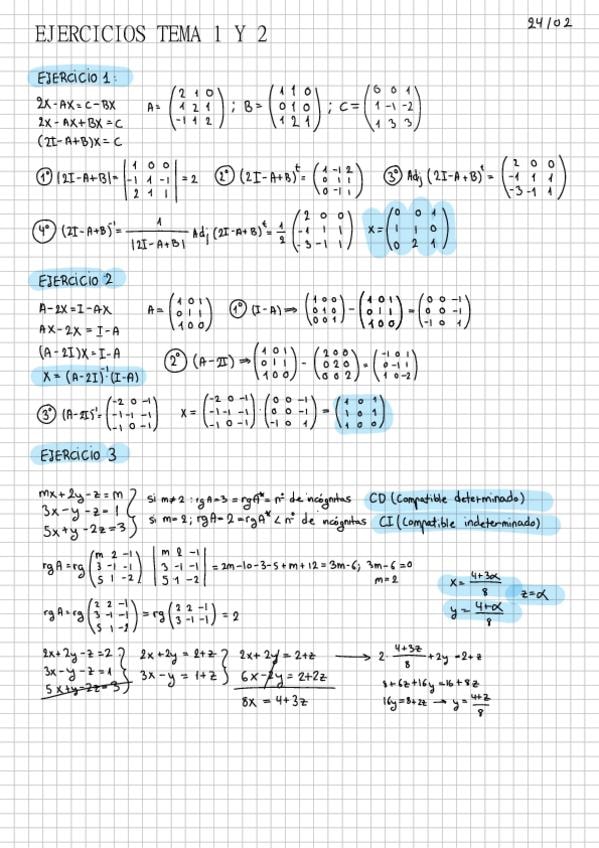 24/02
EJERCICIOS TEMA 1 Y 2
EJERCICIO 1:
2X-AX=C-BX
2X-AX+BX=C
(2I-A+B)X=C
A= (2 1 0 / 1 2 1 / -1 1 2) ; B= (1 1 0 / 0 1 0 / 1 2 1) ; C= (0 0 1 / 1 -1 -2 / 1 3 3)
1º |2I-A+B|= |1 0 0 / -1 1 -1 / 2 1 1| = 2 2º (2I-A+B)^t = (1 -1 2 / 0 1 1 / 0 -1 1) 3º Adj (2I-A+B)^t = (2 0 0 / -1 1 1 / -3 -1 1)
4º (2I-A+B)^-1 = 1/|2I-A+B| Adj (2I-A+B)^t = 1/2 (2 0 0 / -1 1 1 / -3 -1 1) X= (0 0 1 / 1 1 0 / 0 2 1)
EJERCICIO 2
A-2X=I-AX
AX-2X = I-A
(A-2I)X=I-A
X = (A-2I)^-1 (I-A)
A= (1 0 1 / 0 1 1 / 1 0 0) 1º (I-A) ⇒ (1 0 0 / 0 1 0 / 0 0 1) - (1 0 1 / 0 1 1 / 1 0 0) = (0 0 -1 / 0 0 -1 / -1 0 1)
2º (A-2I) ⇒ (1 0 1 / 0 1 1 / 1 0 0) - (2 0 0 / 0 2 0 / 0 0 2) = (-1 0 1 / 0 -1 1 / 1 0 -2)
3º (A-2I)^-1 = (-2 0 -1 / -1 -1 -1 / -1 0 -1) X = (-2 0 -1 / -1 -1 -1 / -1 0 -1) · (0 0 -1 / 0 0 -1 / -1 0 1) = (1 0 1 / 1 0 1 / 1 0 0)
EJERCICIO 3
mx+2y-z=m
3x-y-z=1
5x+y-2z=3
si m≠2 : rgA=3 = rgA* = nº de incógnitas CD (Compatible determinado)
si m=2; rgA=2=rgA* < nº de incógnitas CI (Compatible indeterminado)
rgA=rg (m 2 -1 / 3 -1 -1 / 5 1 -2) |m 2 -1 / 3 -1 -1 / 5 1 -2| = 2m-10-3-5+m+12=3m-6; 3m-6=0
m=2
x= 4+3α/8
y= 4+α/8
z=α
rgA=rg (2 2 -1 / 3 -1 -1 / 5 1 -2) = rg (2 2 -1 / 3 -1 -1) = 2
2x+2y-z=2
3x-y-z=1
5x+y-2z=3
2x+2y=2+z
3x-y=1+z
2x+2y=2+z
6x-2y=2+2z
8x = 4+3z
→ 2· 4+3z/8 +2y=2+z
8+6z+16y=16+8z
16y=8+2z → y= 4+z/8